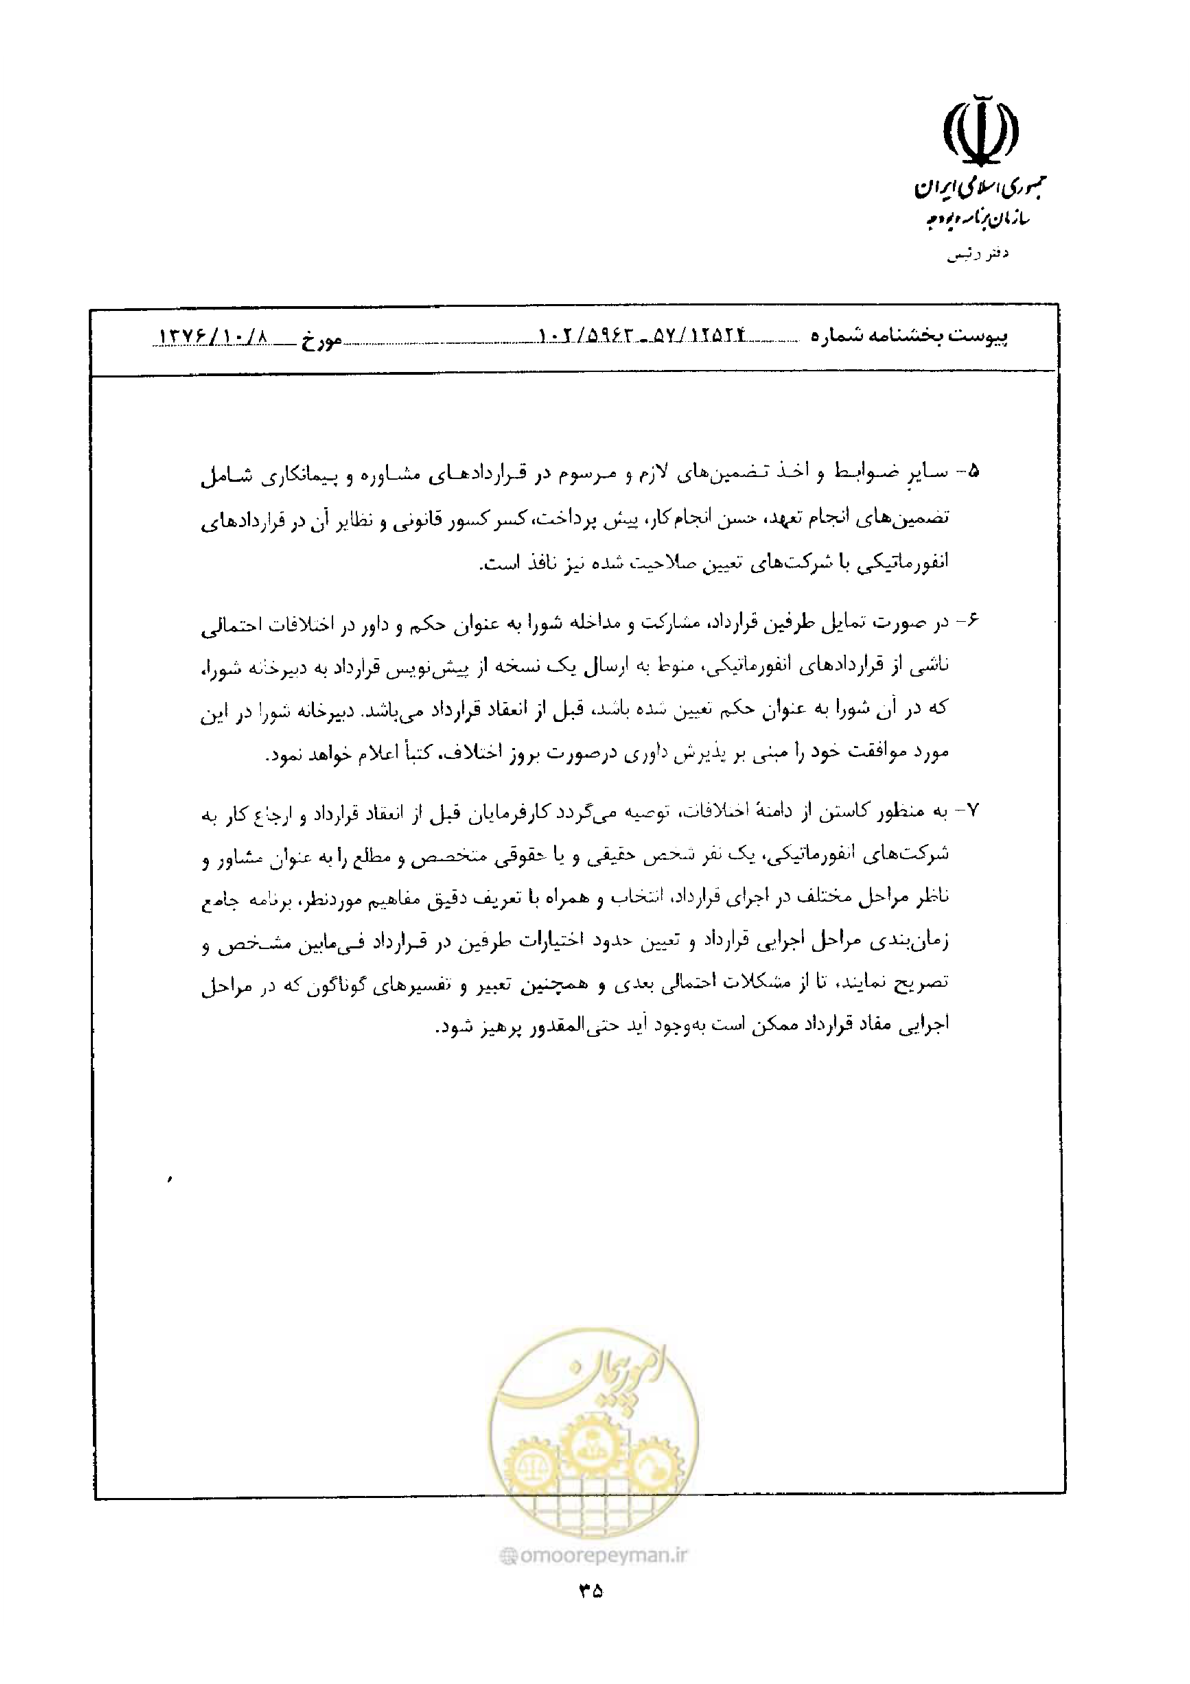 جمهوری اسلامی ایران
سازمان برنامه و بودجه
دفتر رئیس
پیوست بخشنامه شماره ۱۰۲/۵۹۶۳ـ۵۷/۱۲۵۲۴ مورخ ۱۳۷۶/۱۰/۸
۵- سایر ضوابط و اخذ تضمین‌های لازم و مرسوم در قراردادهای مشاوره و پیمانکاری شامل
تضمین‌های انجام تعهد، حسن انجام کار، پیش پرداخت، کسر کسور قانونی و نظایر آن در قراردادهای
انفورماتیکی با شرکت‌های تعیین صلاحیت شده نیز نافذ است.
۶- در صورت تمایل طرفین قرارداد، مشارکت و مداخله شورا به عنوان حکم و داور در اختلافات احتمالی
ناشی از قراردادهای انفورماتیکی، منوط به ارسال یک نسخه از پیش‌نویس قرارداد به دبیرخانه شورا،
که در آن شورا به عنوان حکم تعیین شده باشد، قبل از انعقاد قرارداد می‌باشد. دبیرخانه شورا در این
مورد موافقت خود را مبنی بر پذیرش داوری درصورت بروز اختلاف، کتباً اعلام خواهد نمود.
۷- به منظور کاستن از دامنهٔ اختلافات، توصیه می‌گردد کارفرمایان قبل از انعقاد قرارداد و ارجاع کار به
شرکت‌های انفورماتیکی، یک نفر شخص حقیقی و یا حقوقی متخصص و مطلع را به عنوان مشاور و
ناظر مراحل مختلف در اجرای قرارداد، انتخاب و همراه با تعریف دقیق مفاهیم موردنظر، برنامه جامع
زمان‌بندی مراحل اجرایی قرارداد و تعیین حدود اختیارات طرفین در قرارداد فی‌مابین مشخص و
تصریح نمایند، تا از مشکلات احتمالی بعدی و همچنین تعبیر و تفسیرهای گوناگون که در مراحل
اجرایی مفاد قرارداد ممکن است به‌وجود آید حتی‌المقدور پرهیز شود.
امور پیمان
@omoorepeyman.ir
۳۵